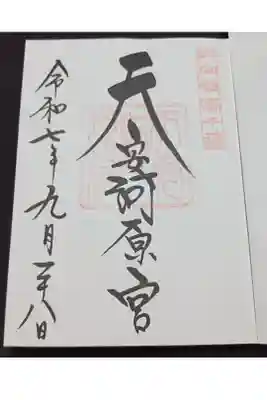 天安河原宮
令和七年九月二十八日